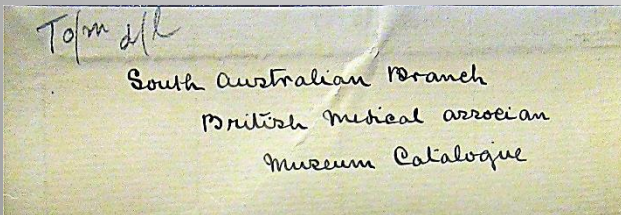 To/m d/l
South Australian Branch
British Medical associan
Museum Catalogue